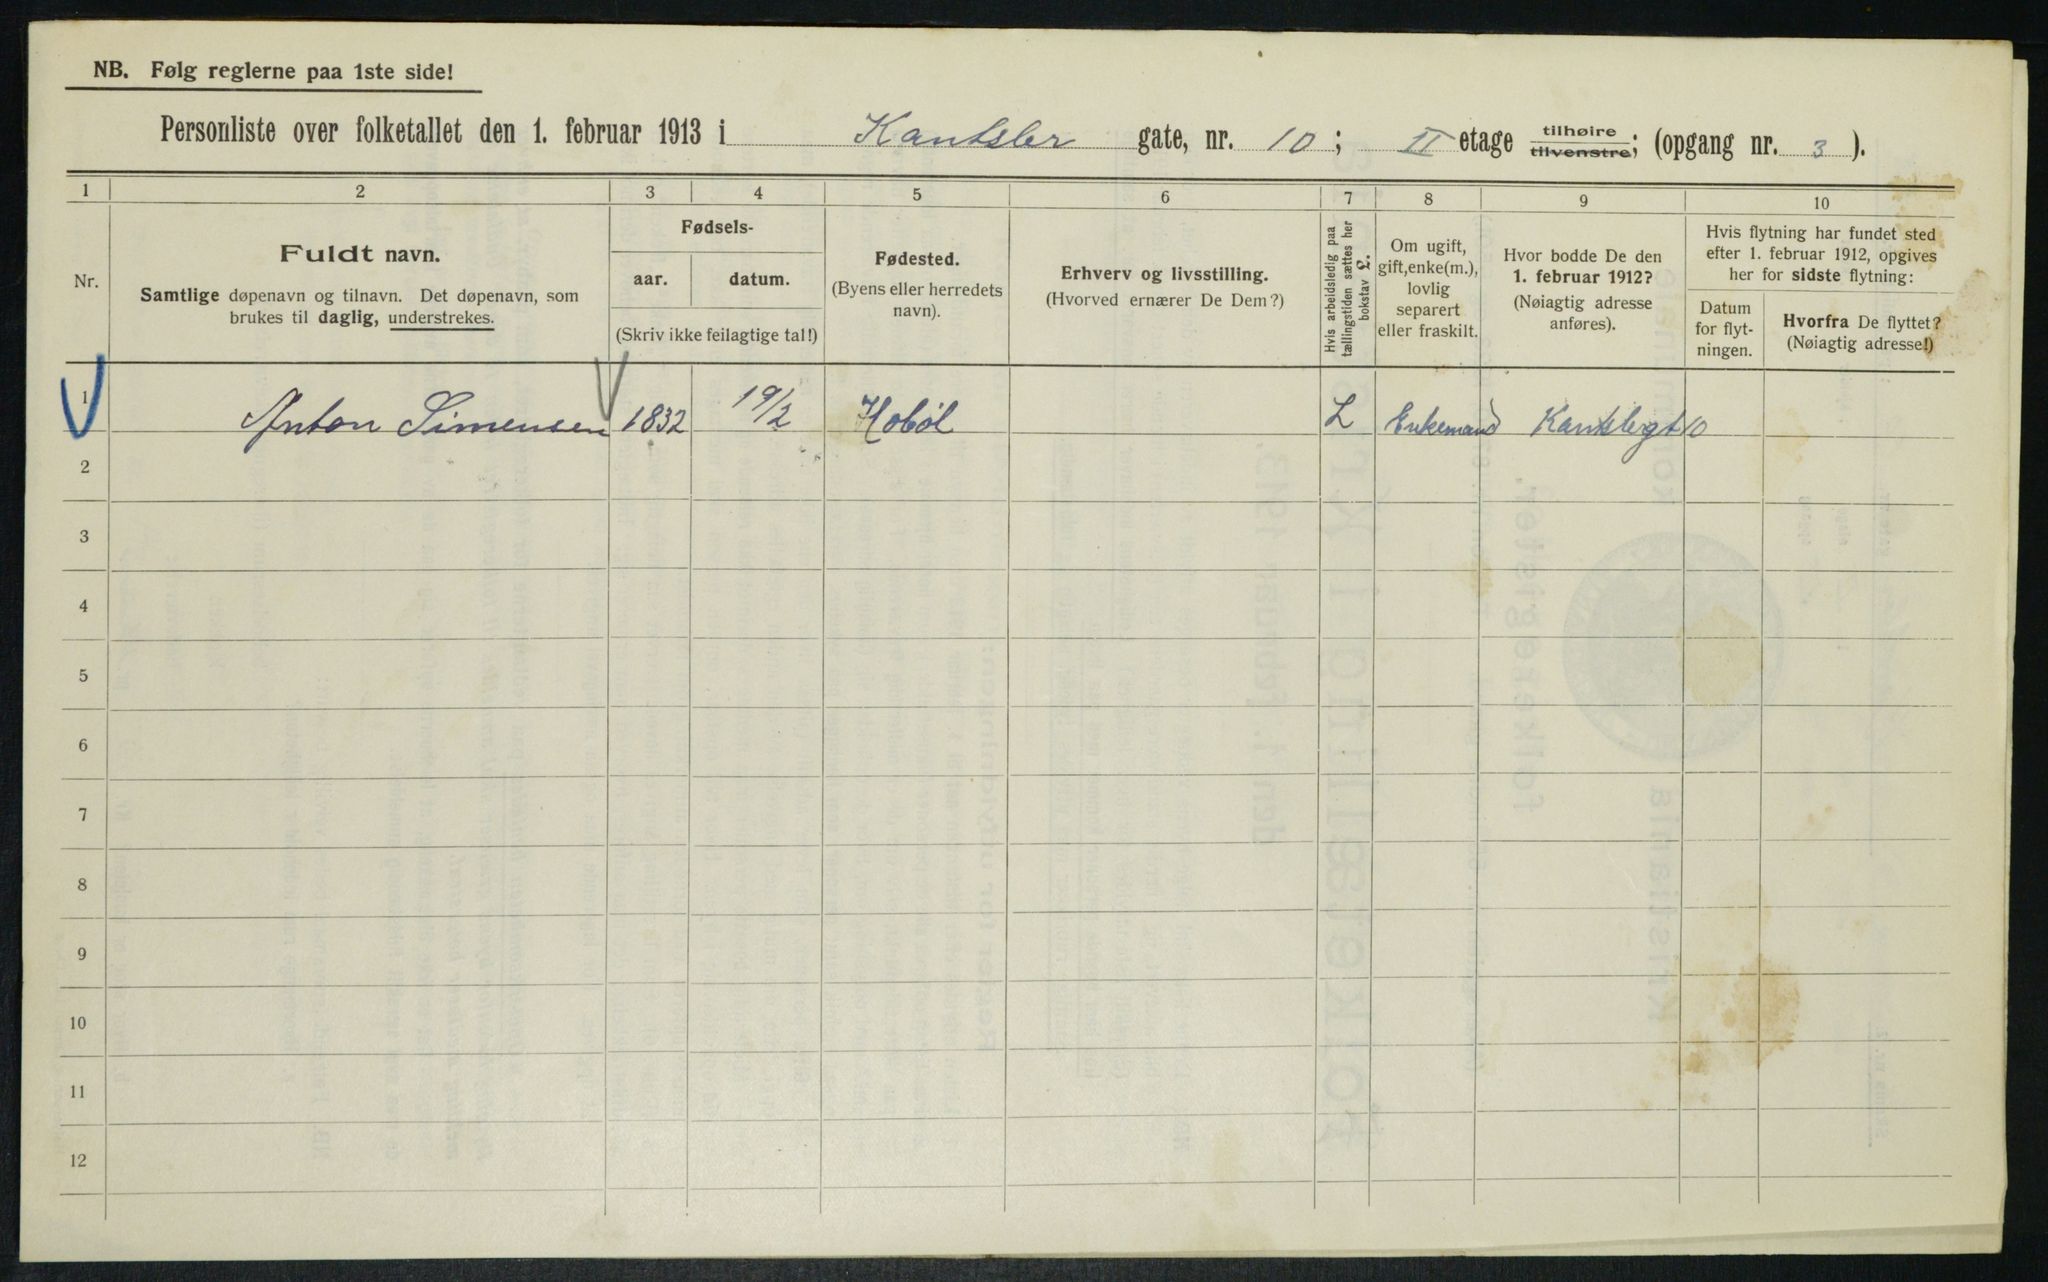 NB. Følg reglerne paa 1ste side!
Personliste over folketallet den 1. februar 1913 i Kantsler gate, nr. 10; II etage tilhøire tilvenstre; (opgang nr. 3).
1 2 3 4 5 6 7 8 9 10
Nr.
Fuldt navn.
Samtlige døpenavn og tilnavn. Det døpenavn, som
brukes til daglig, understrekes.
Fødsels-
aar. datum.
(Skriv ikke feilagtige tal!)
Fødested.
(Byens eller herredets
navn).
Erhverv og livsstilling.
(Hvorved ernærer De Dem?)
Hvis arbeidsledig paa
tællingstiden sættes her
bokstav L.
Om ugift,
gift, enke(m.),
lovlig
separert
eller fraskilt.
Hvor bodde De den
1. februar 1912?
(Nøiagtig adresse
anføres).
Hvis flytning har fundet sted
efter 1. februar 1912, opgives
her for sidste flytning:
Datum
for flyt-
ningen.
Hvorfra De flyttet?
(Nøiagtig adresse!)
1 Anton Simensen 1832 19/2 Hobøl L Enkemand Kantslergt 10
2
3
4
5
6
7
8
9
10
11
12